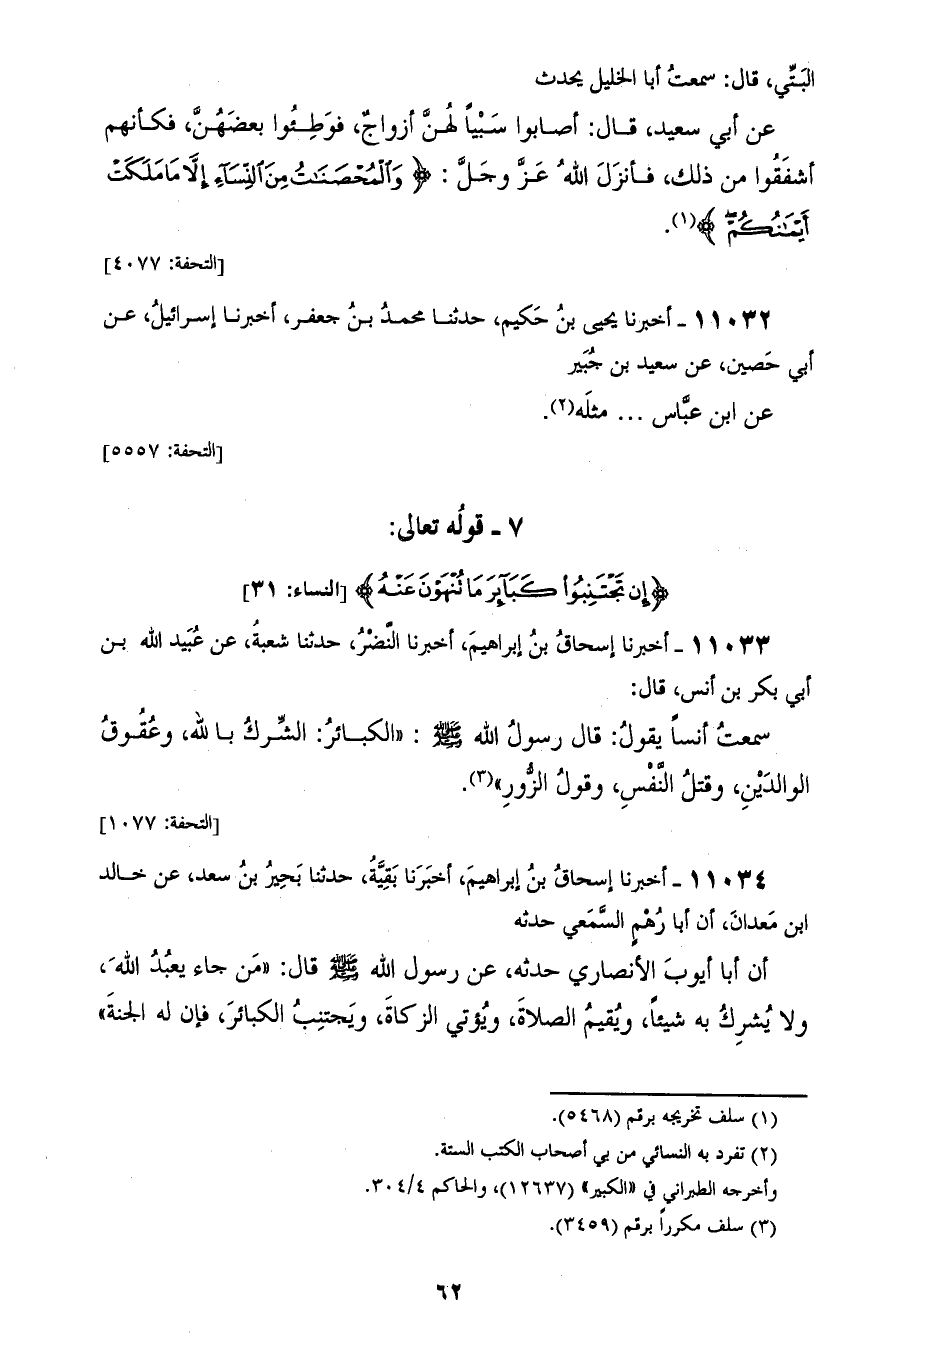 البَتِّي، قال: سمعتُ أبا الخليل يحدث
عن أبي سعيد، قال: أصابوا سَبْياً لهُنَّ أزواجٌ، فوَطِئُوا بعضَهُنَّ، فكأنهم
أشفَقُوا من ذلك، فأنزَلَ اللهُ عَزَّ وجَلَّ: ﴿وَٱلْمُحْصَنَٰتُ مِنَ ٱلنِّسَآءِ إِلَّا مَا مَلَكَتْ
أَيْمَٰنُكُمْ﴾(١).
[التحفة: ٤٠٧٧]
١١٠٣٢ ـ أخبرنا يحيى بنُ حَكيم، حدثنا محمدُ بنُ جعفر، أخبرنا إسرائيلُ، عن
أبي حَصين، عن سعيد بن جُبَير
عن ابن عبَّاس ... مثلَه(٢).
[التحفة: ٥٥٥٧]
٧ ـ قولُه تعالى:
﴿إِن تَجْتَنِبُوا۟ كَبَآئِرَ مَا تُنْهَوْنَ عَنْهُ﴾ [النساء: ٣١]
١١٠٣٣ ـ أخبرنا إسحاقُ بنُ إبراهيمَ، أخبرنا النَّضْرُ، حدثنا شعبةُ، عن عُبَيد الله بن
أبي بكر بن أنس، قال:
سمعتُ أنساً يقولُ: قال رسولُ الله ﷺ: «الكبائرُ: الشِّركُ بالله، وعُقُوقُ
الوالدَيْنِ، وقتلُ النَّفْسِ، وقولُ الزُّورِ»(٣).
[التحفة: ١٠٧٧]
١١٠٣٤ ـ أخبرنا إسحاقُ بنُ إبراهيمَ، أخبَرَنا بَقِيَّةُ، حدثنا بَحِيرُ بنُ سعد، عن خالد
ابن مَعدانَ، أن أبا رُهْمٍ السَّمَعي حدثه
أن أبا أيوبَ الأنصاري حدثه، عن رسول الله ﷺ قال: «مَن جاء يعبُدُ اللهَ،
ولا يُشرِكُ به شيئاً، ويُقيمُ الصلاةَ، ويُؤتي الزكاةَ، ويَجتنِبُ الكبائرَ، فإن له الجنةَ»
(١) سلف تخريجه برقم (٥٤٦٨).
(٢) تفرد به النسائي من بي أصحاب الكتب الستة.
وأخرجه الطبراني في «الكبير» (١٢٦٣٧)، والحاكم ٣٠٤/٤.
(٣) سلف مكرراً برقم (٣٤٥٩).
٦٢